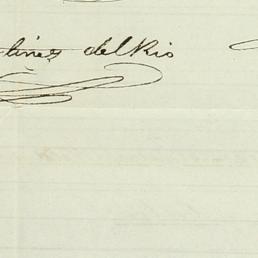 tines del Rio